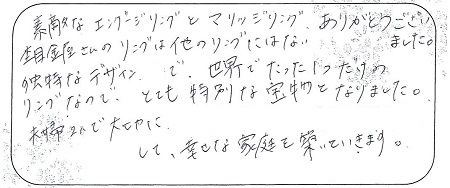 素敵なエンゲージリングとマリッジリング、ありがとうござい
ました。
杢目金屋さんのリングは他のリングにはない
独特なデザイン で、世界でたった1つだけの
リングなので、とても特別な宝物となりました。
夫婦2人で大切に
して、幸せな家庭を築いていきます。